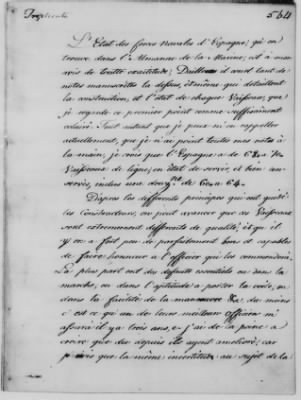 Triplicata
564
L'Etat des forces navales d'Espagne, qu'on
trouve dans l'Almanac de la Marine, est à mon
avis de toute exactitude; D'ailleurs il avait tant de
notes manuscrites la dessus, et même qui detaillent
la construction, et l'état de chaque Vaisseau, que
je regarde ce premier point comme suffisamment
eclairé. Tout autant que je peux m'en rappeller
actuellement, que je n'ai point toutes mes notes à
la main, je vois que l'Espagne a de
Vaisseaux de ligne, en état de servir, et bien con-
servés, de 60 a 64.
D'apres les differents principes qui ont guidé
les Constructeurs, on peut avancer que ces Vaisseaux
sont extremement differents de qualité, et qu'il
y en a fort peu de parfaitement bons et capables
de faire honneur a l'officier qui les commandera.
La plus part ont des defauts essentiels ou dans la
marche, ou dans l'aptitude a porter la voile, ou
dans la facilité de la manœuvre &a, du moins
c'est ce qu'un de leurs meilleurs officiers m'
assura il y a trois ans, et j'ai de la peine a
croire que depuis ils ayent amelioré; car
je vois que la même incertitude au sujet de la